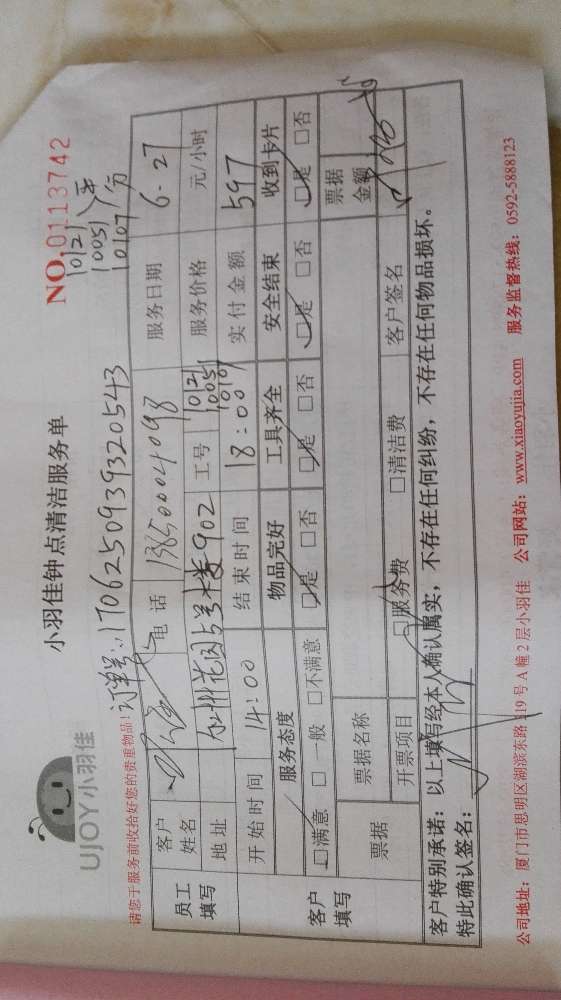 UJOY小羽佳
小羽佳钟点清洁服务单
NO.0113742
请您于服务前收拾好您的贵重物品!
订单号:1706250939320543
10121
10051
10107
员工填写
客户姓名
电话 13650004098
服务日期 6.27
地址 加州花园5号楼902
工号 10121 10051 10107
服务价格 元/小时
开始时间 14:00
结束时间 18:00
实付金额 597
客户填写
服务态度 物品完好 工具齐全 安全结束 收到卡片
□满意 □一般 □不满意 □是 □否 □是 □否 □是 □否 □是 □否
票据
票据名称
票据金额
开票项目 □服务费 □清洁费
客户签名
客户特别承诺:以上填写经本人确认属实,不存在任何纠纷,不存在任何物品损坏。
特此确认签名:
公司地址:厦门市思明区湖滨东路319号A幢2层小羽佳 公司网站:www.xiaoyujia.com 服务监督热线:0592-5888123